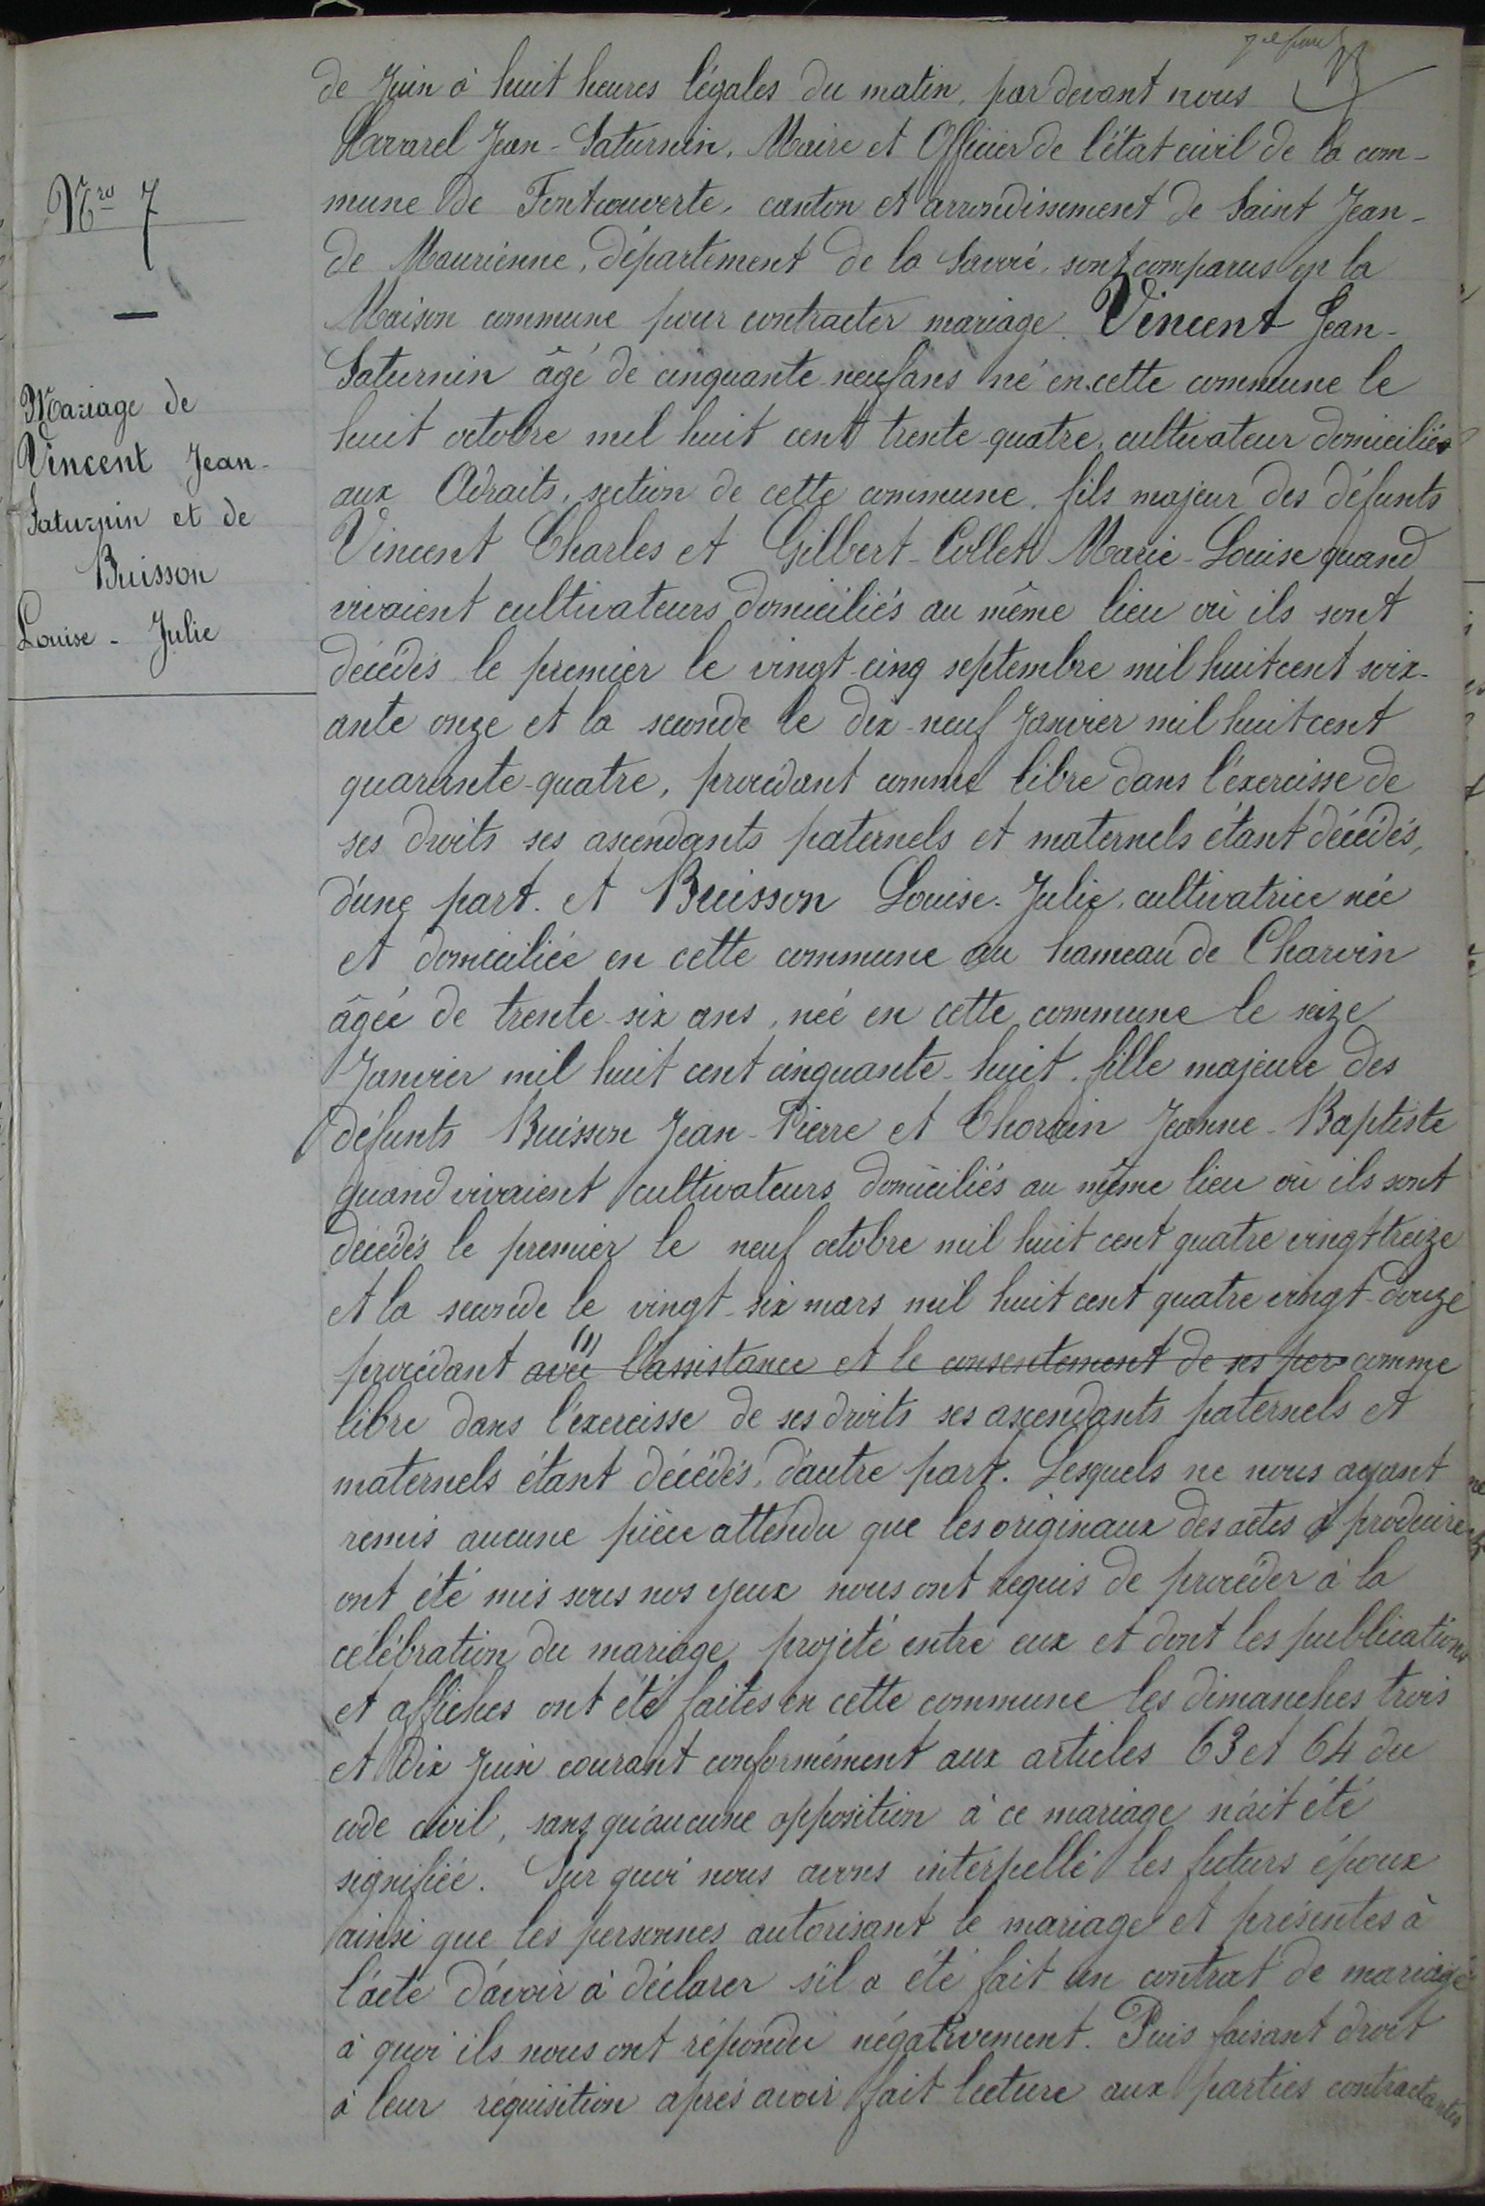 de Juin à huit heures légales du matin, par devant nous
Jean-Saturnin, Maire et Officier de l'état civil de la com-
mune de Fontcouverte, canton et arrondissement de Saint Jean-
de Maurienne, département de la Savoie, sont comparus en la
Maison commune pour contracter mariage. Vincent Jean-
Saturnin âgé de cinquante-neuf ans né en cette commune le
huit octobre mil huit cent trente-quatre, cultivateur domicilié
aux Adraits, section de cette commune, fils majeur des défunts
Vincent Charles et Gilbert-Collet Marie-Louise quand
vivaient cultivateurs domiciliés au même lieu où ils sont
décédés le premier le vingt-cinq septembre mil huit cent soix-
ante onze et la seconde le dix-neuf Janvier mil huit cent
quarante-quatre, procédant comme libre dans l'éxercisse de
ses droits ses ascendants paternels et maternels étant décédés,
d'une part. et Buisson Louise-Julie, cultivatrice née
et domiciliée en cette commune au hameau de Charvin
âgée de trente-six ans, née en cette commune le seize
Janvier mil huit cent cinquante-huit, fille majeure des
défunts Buisson Jean-Pierre et Jeanne-Baptiste
quand vivaient cultivateurs domiciliés au même lieu où ils sont
décédés le premier le neuf octobre mil huit cent quatre vingt treize
et la seconde le vingt-six mars mil huit cent quatre vingt-douze
procédant (1) avec l'assistance et le consentement de ses per comme
libre dans l'exercisse de ses droits ses ascendants paternels et
maternels étant décédés, d'autre part. Lesquels ne nous ayant
remis aucune pièce attendu que les originaux des actes à produire
ont été mis sous nos yeux nous ont requis de procéder à la
célébration du mariage projeté entre eux et dont les publications
et affiches ont été faites en cette commune les dimanches trois
et dix Juin courant conformément aux articles 63 et 64 du
code civil, sans qu'aucune opposition à ce mariage n'ait été
signifiée. Sur quoi nous avons interpellé les futurs époux
ainsi que les personnes autorisant le mariage et présentes à
l'acte d'avoir à déclarer s'il a été fait un contrat de mariage
à quoi ils nous ont répondu négativement. Puis faisant droit
à leur réquisition après avoir fait lecture aux parties contractantes
Nro 7
Mariage de
Vincent Jean-
Saturnin et de
Buisson
Louise-Julie